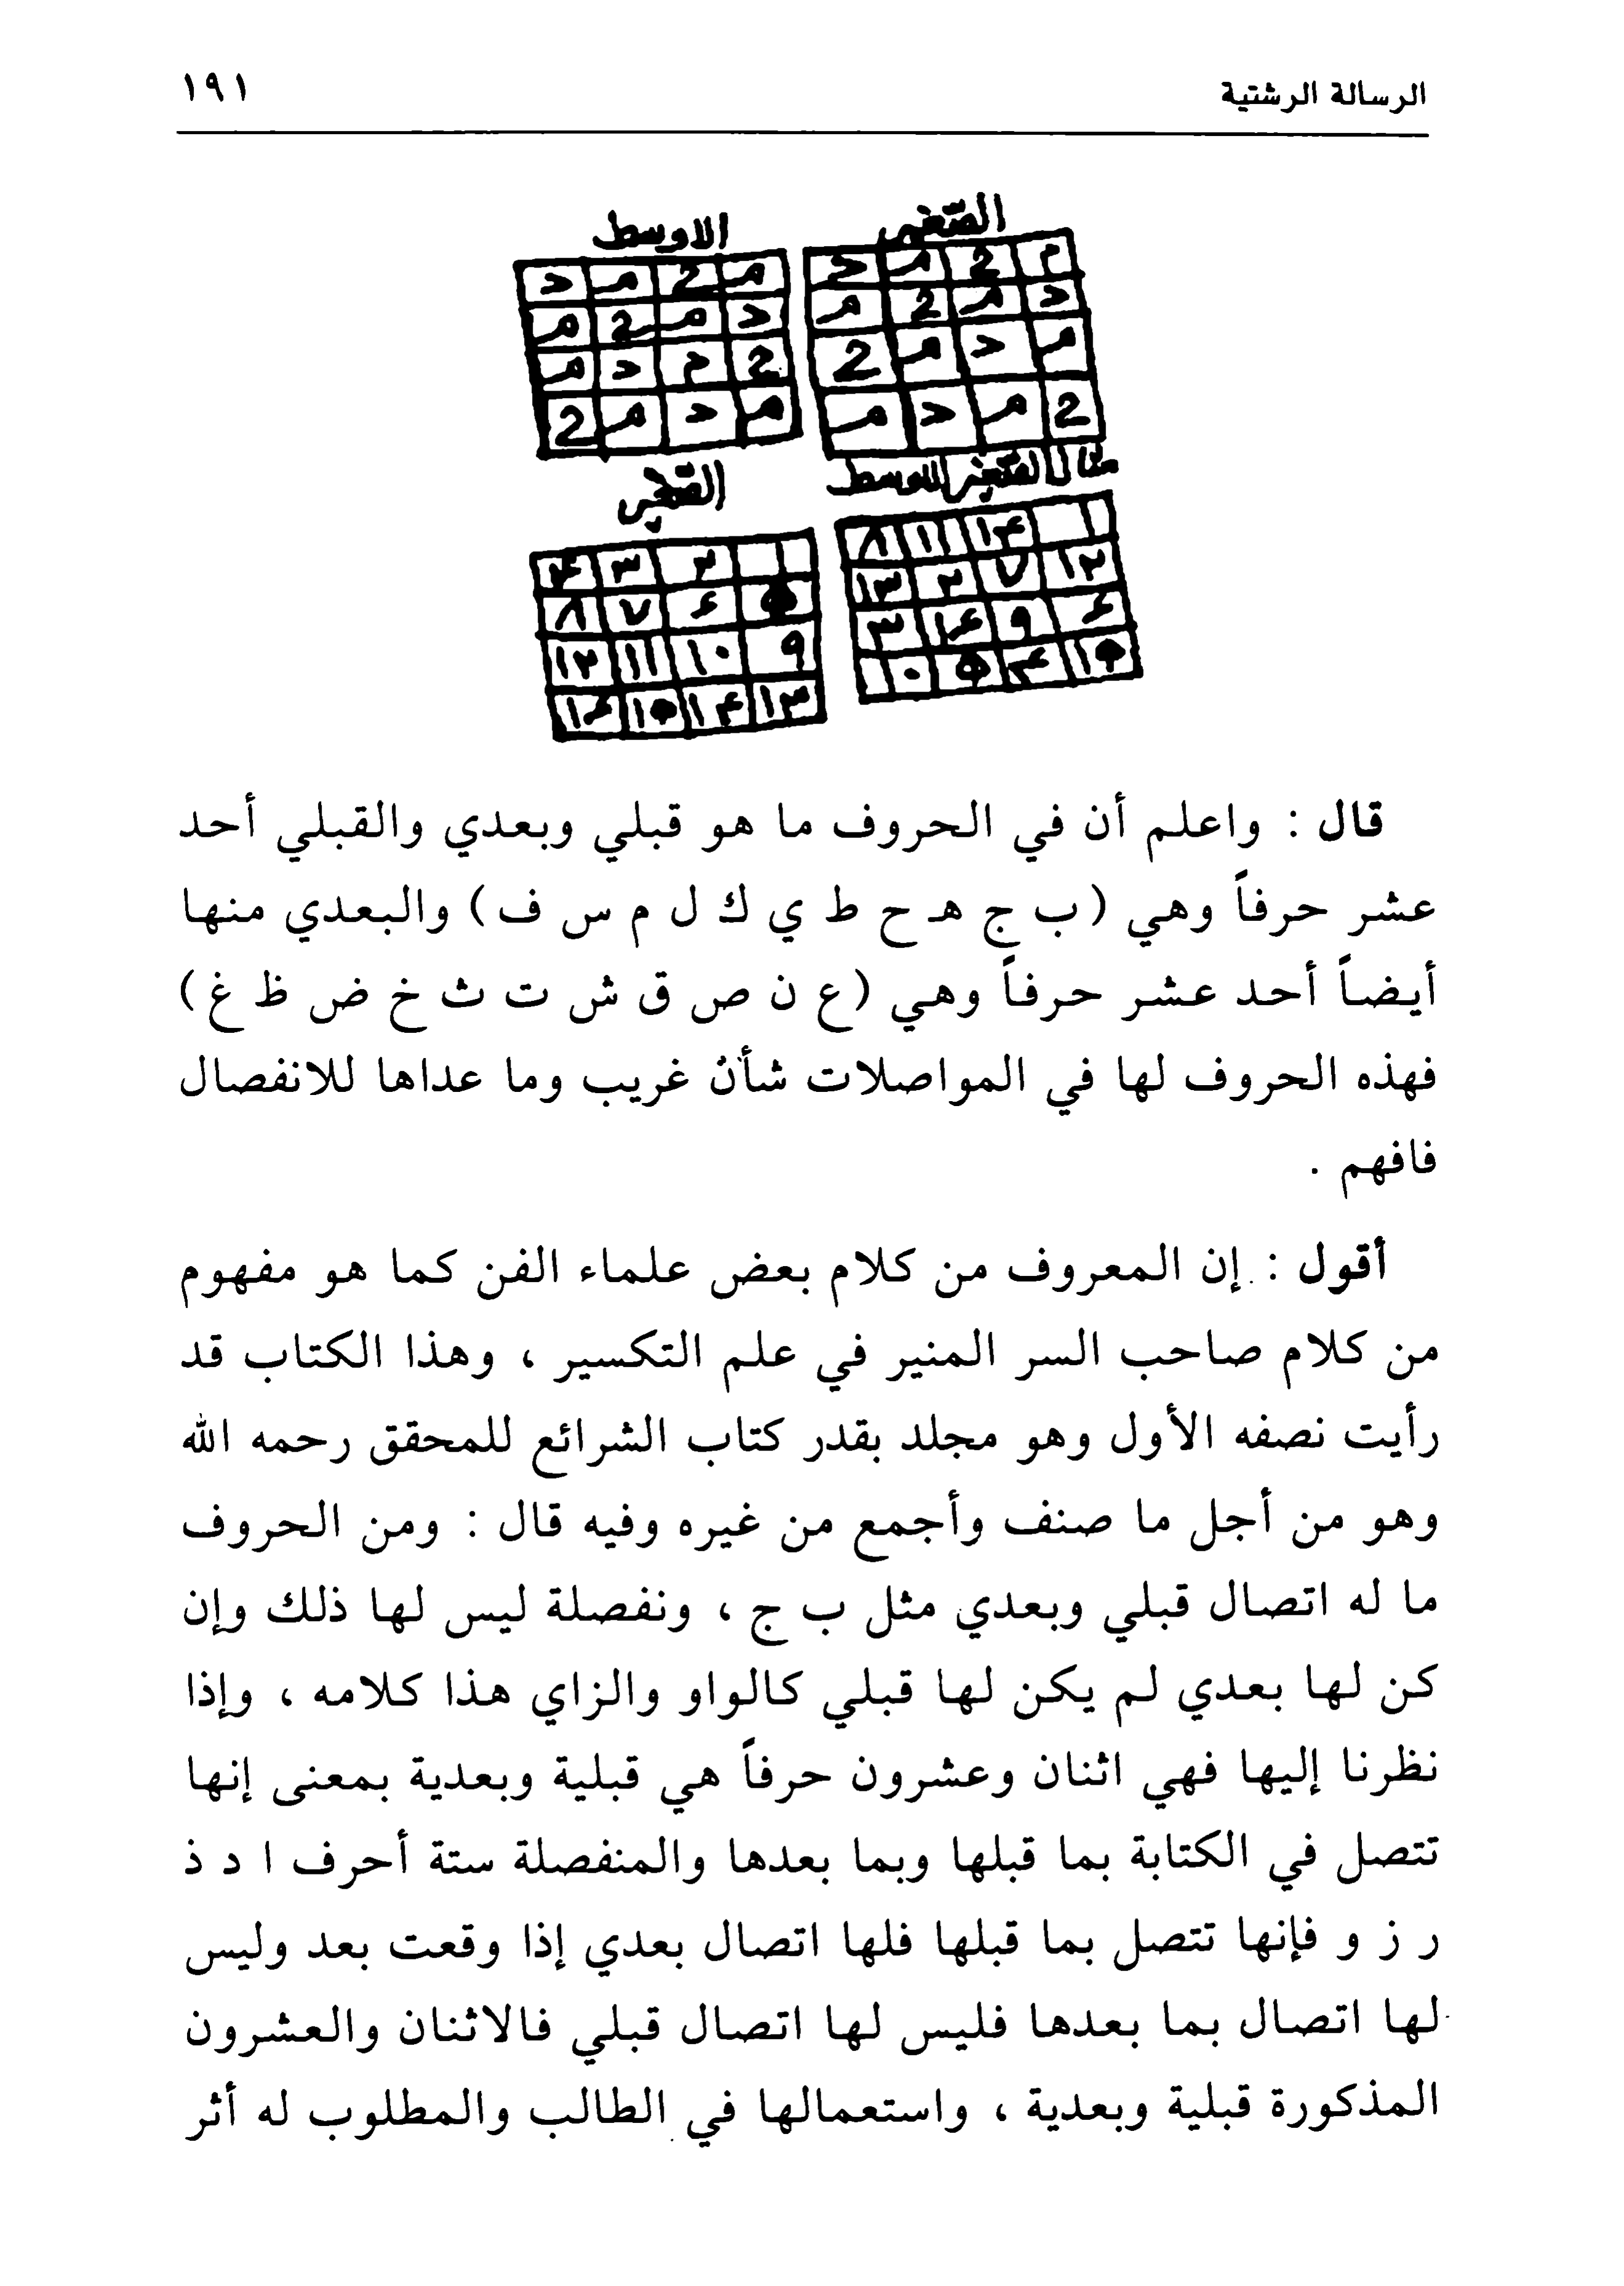 الرسالة الرشتية ١٩١
الصغير الاوسط
م ح م د
د م ح م
م د م ح
ح م د م
م ح م د
د م ح م
ح م د م
م د م ح
مثال الصغير الاوسط
١ ١٤ ١١ ٨
١٢ ٧ ٢ ١٣
٦ ٩ ١٦ ٣
١٥ ٤ ٥ ١٠
١ ٢ ٣ ٤
٥ ٦ ٧ ٨
٩ ١٠ ١١ ١٢
١٣ ١٤ ١٥ ١٦
قال : واعلم أن في الحروف ما هو قبلي وبعدي والقبلي أحد
عشر حرفاً وهي ( ب ج هـ ح ط ي ك ل م س ف ) والبعدي منها
أيضاً أحد عشر حرفاً وهي ( ع ن ص ق ش ت ث خ ض ظ غ )
فهذه الحروف لها في المواصلات شأن غريب وما عداها للانفصال
فافهم .
أقول : إن المعروف من كلام بعض علماء الفن كما هو مفهوم
من كلام صاحب السر المنير في علم التكسير ، وهذا الكتاب قد
رأيت نصفه الأول وهو مجلد بقدر كتاب الشرائع للمحقق رحمه الله
وهو من أجل ما صنف وأجمع من غيره وفيه قال : ومن الحروف
ما له اتصال قبلي وبعدي مثل ب ج ، ونفصلة ليس لها ذلك وإن
كن لها بعدي لم يكن لها قبلي كالواو والزاي هذا كلامه ، وإذا
نظرنا إليها فهي اثنان وعشرون حرفاً هي قبلية وبعدية بمعنى إنها
تتصل في الكتابة بما قبلها وبما بعدها والمنفصلة ستة أحرف ا د ذ
ر ز و فإنها تتصل بما قبلها فلها اتصال بعدي إذا وقعت بعد وليس
لها اتصال بما بعدها فليس لها اتصال قبلي فالاثنان والعشرون
المذكورة قبلية وبعدية ، واستعمالها في الطالب والمطلوب له أثر